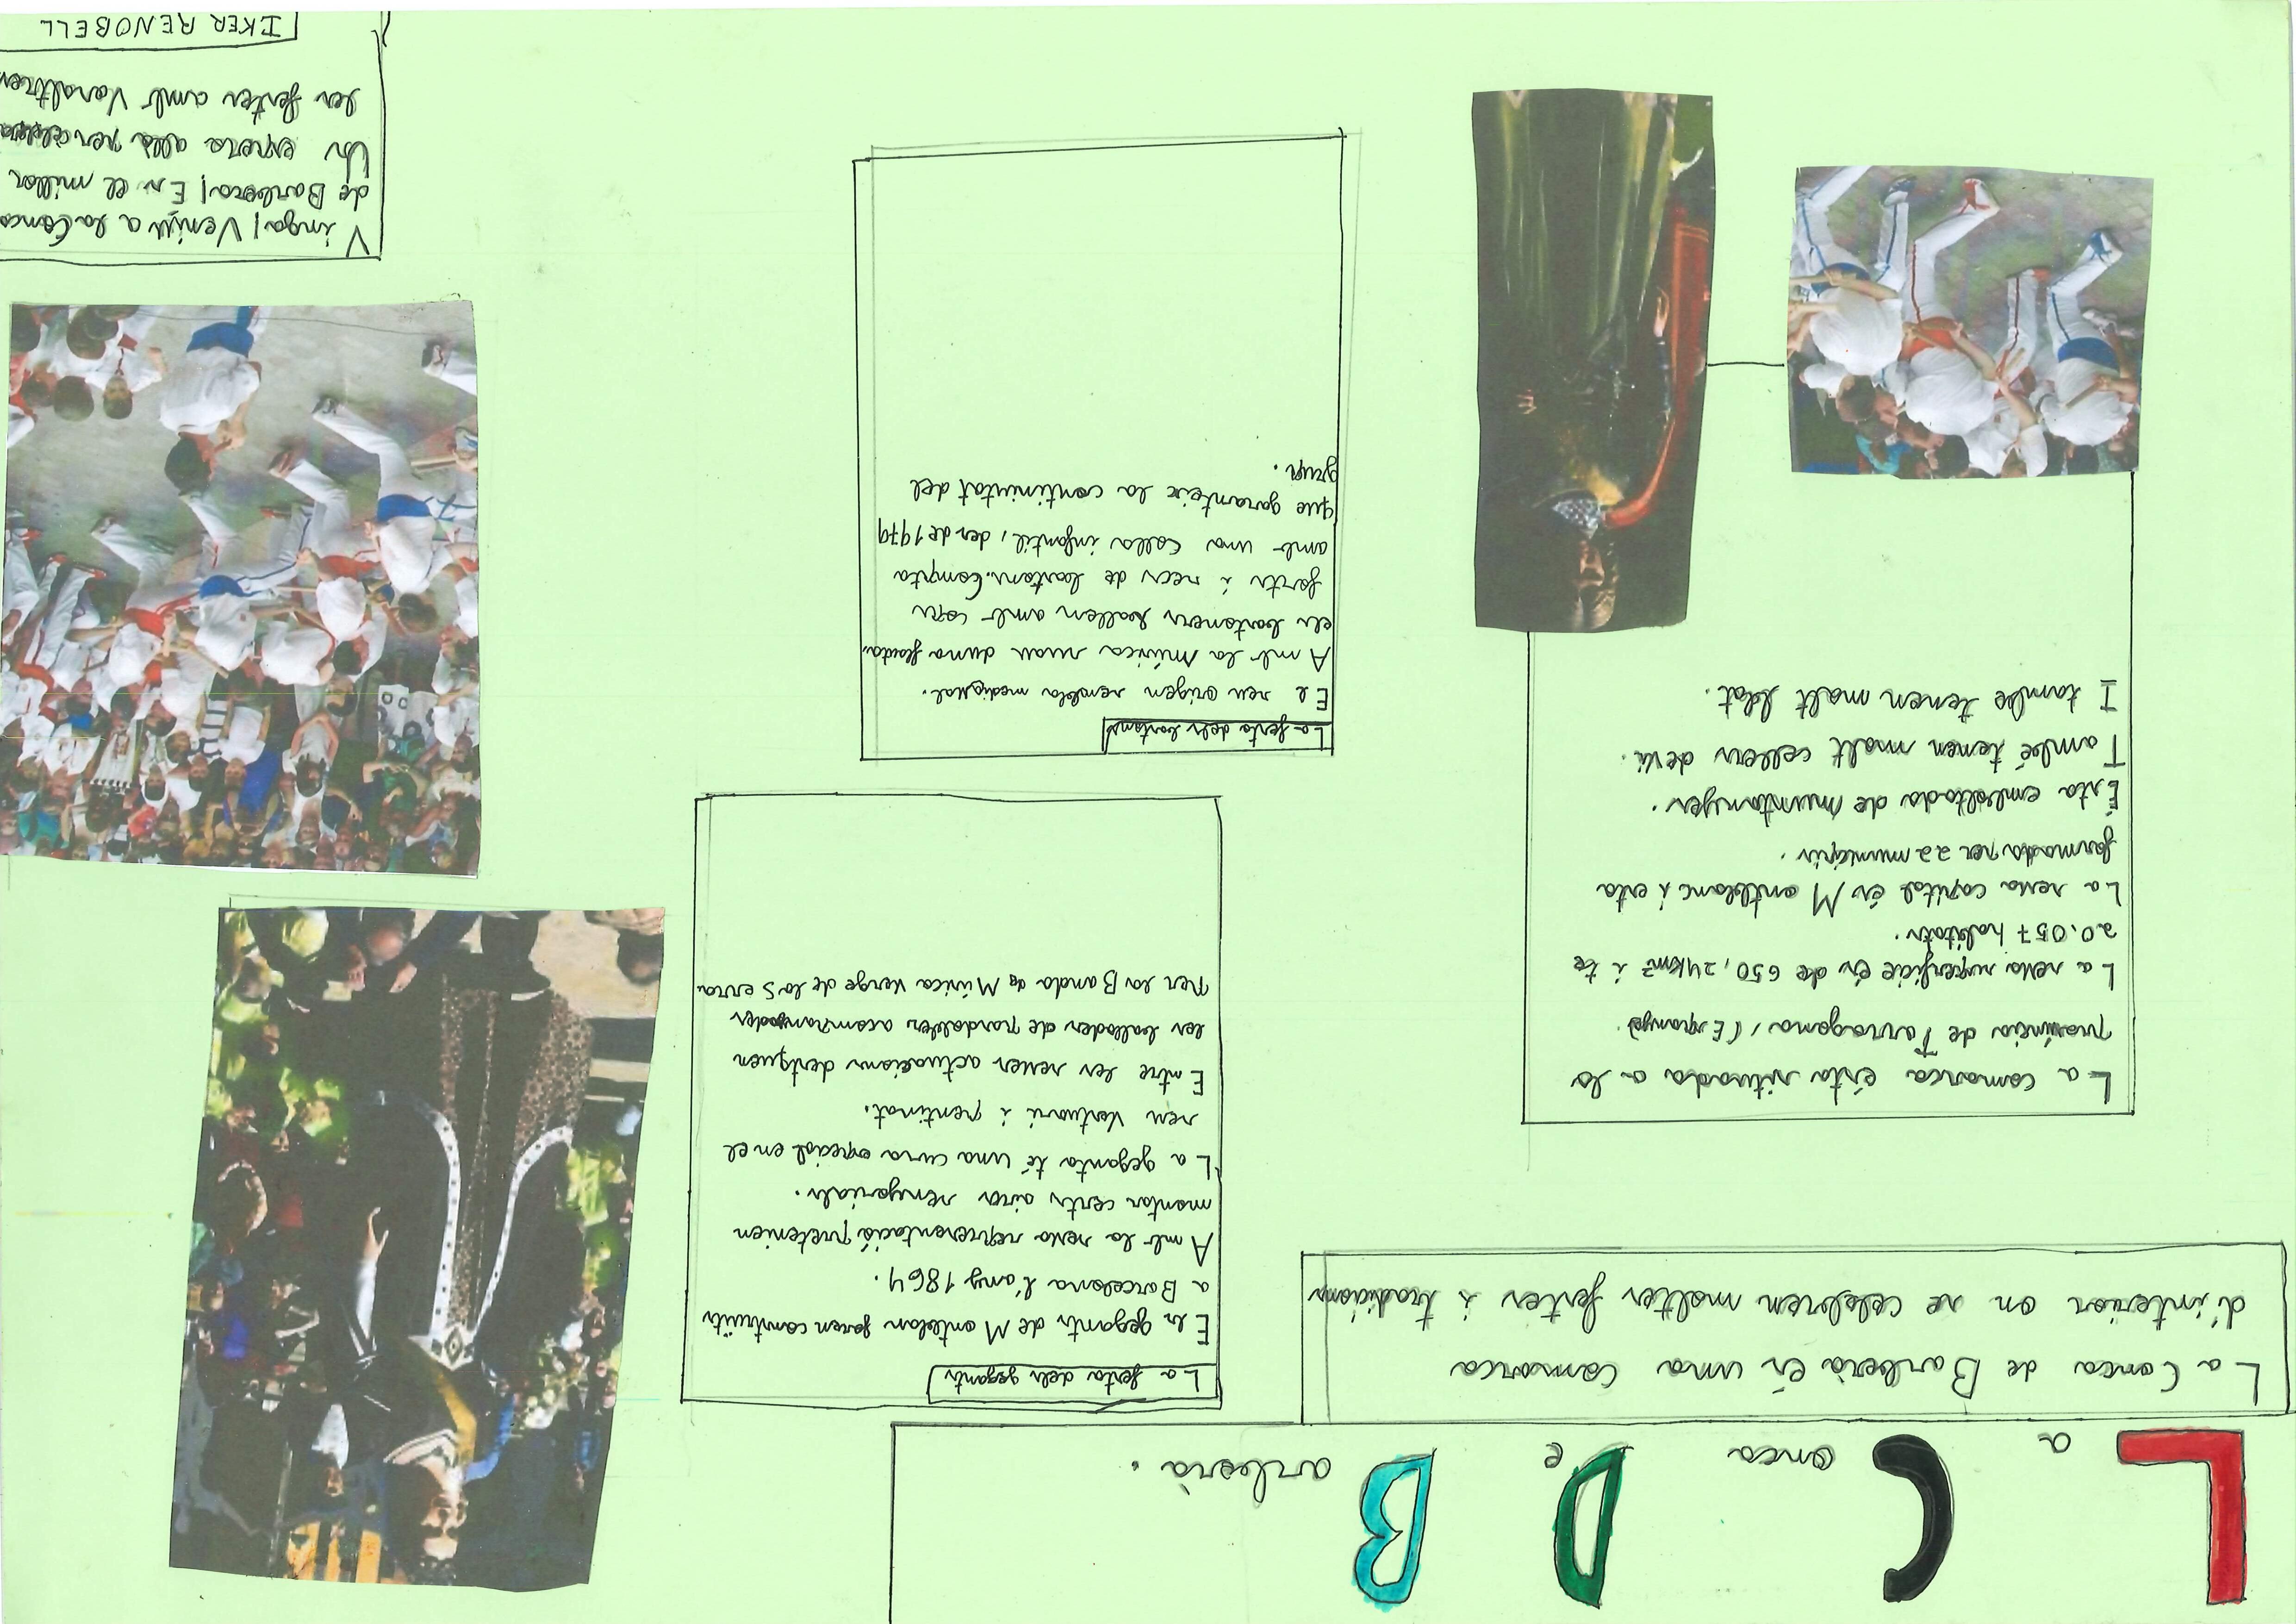 La Conca De Barberà.
La Conca de Barberà és una comarca
d'interior on se celebren moltes festes i tradicions
La comarca ésta situada a la
província de Tarragona, (Espanya).
La seva superfície és de 650,24km² i te
20.057 habitats.
La seva capital és Montblanc i esta
formada per 22 municipis.
Ésta emboltada de muntanyes.
També tenen molt cellers de vi.
I tambe tenen molt blat.
La festa dels gegants
Els gegants de Montblan foren construïts
a Barcelona l'any 1864.
Amb la seva representació pretenien
mostrar certs aires senyorials.
La geganta té una cura especial en el
seu vestuari i pentinat.
Entre les seves actuacions destquen
les ballades de pasdobles acompanyades
Per la Banda de Música Verge de la Serra
La festa dels bastons
El seu origen sembla medieval.
Amb la Música suau duna flauta,
els bastoners ballen amb cops
forts i secs de bastons. Compta
amb una colla infantil, des de 1979
que garanteix la continiutat del
grup.
Vinga! Veniu a la Conca
de Barbera! És el millor
Us espera allà per celebra
les festes amb Vosaltres
IKER RENOBELL